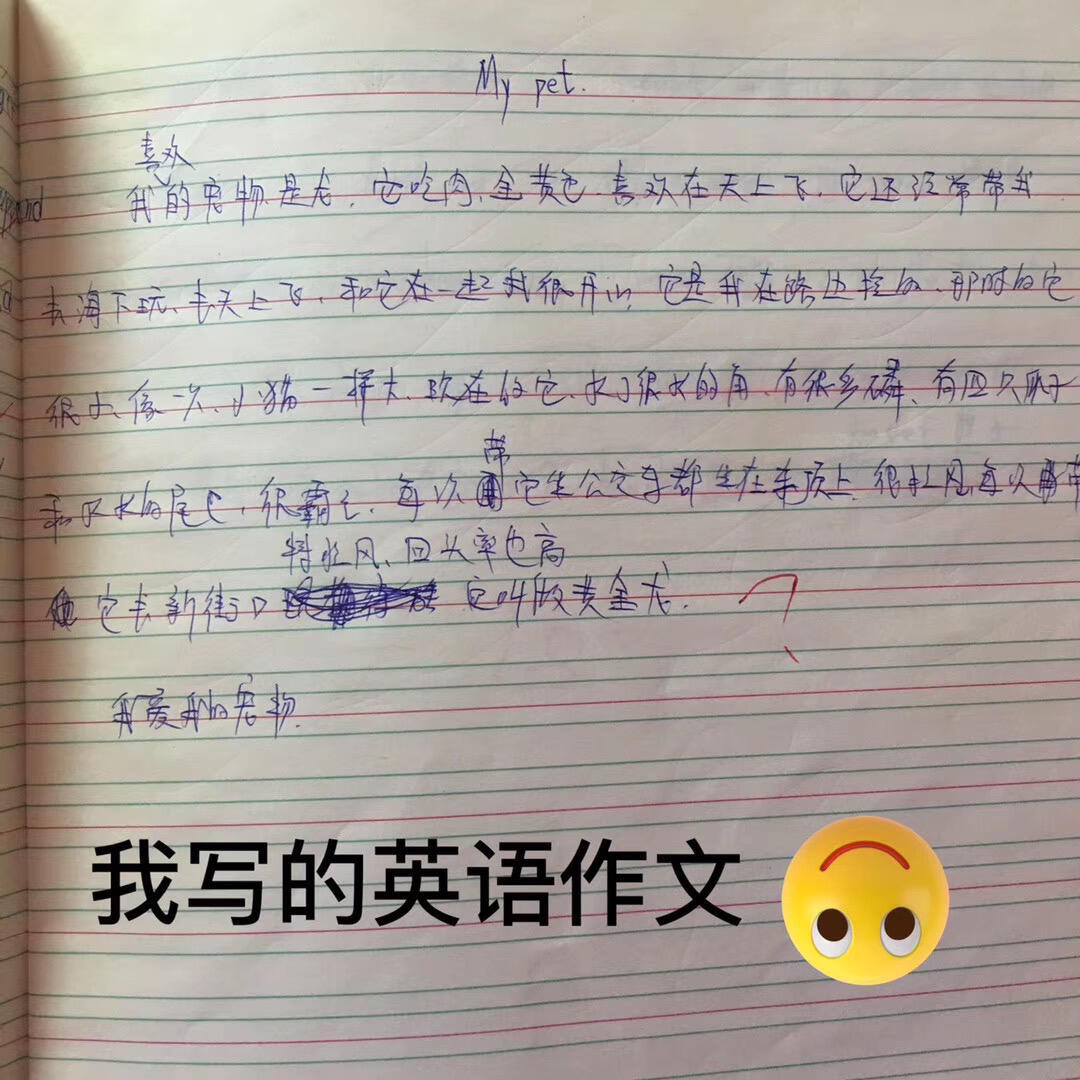 My pet.
喜欢
我的宠物是龙，它吃肉、金黄色、喜欢在天上飞，它还经常带我
去海下玩、去天上飞，和它在一起我很开心，它是我在路边捡的、那时的它
很小、像一只小猫一样大、现在的它、长了很长的角、有很多磷、有四只爪子
和长长的尾巴，很霸气，每次
带
它坐公交车都坐在车顶上，很拉风，每次带
特拉风、回头率也高
它去新街口 它叫版黄金龙.
?
我爱我的宠物.
我写的英语作文